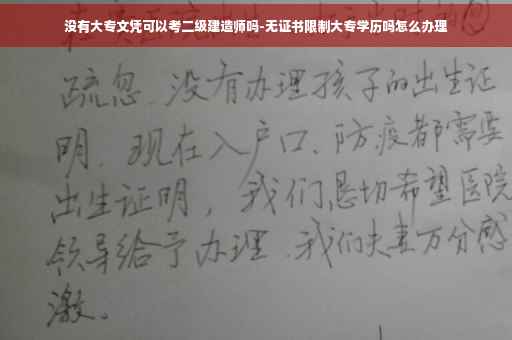 没有大专文凭可以考二级建造师吗-无证书限制大专学历吗怎么办理
疏忽.没有办理孩子的出生证
明.现在入户口、防疫都需要
出生证明，我们恳切希望医院
领导给予办理.我们夫妻万分感
激。